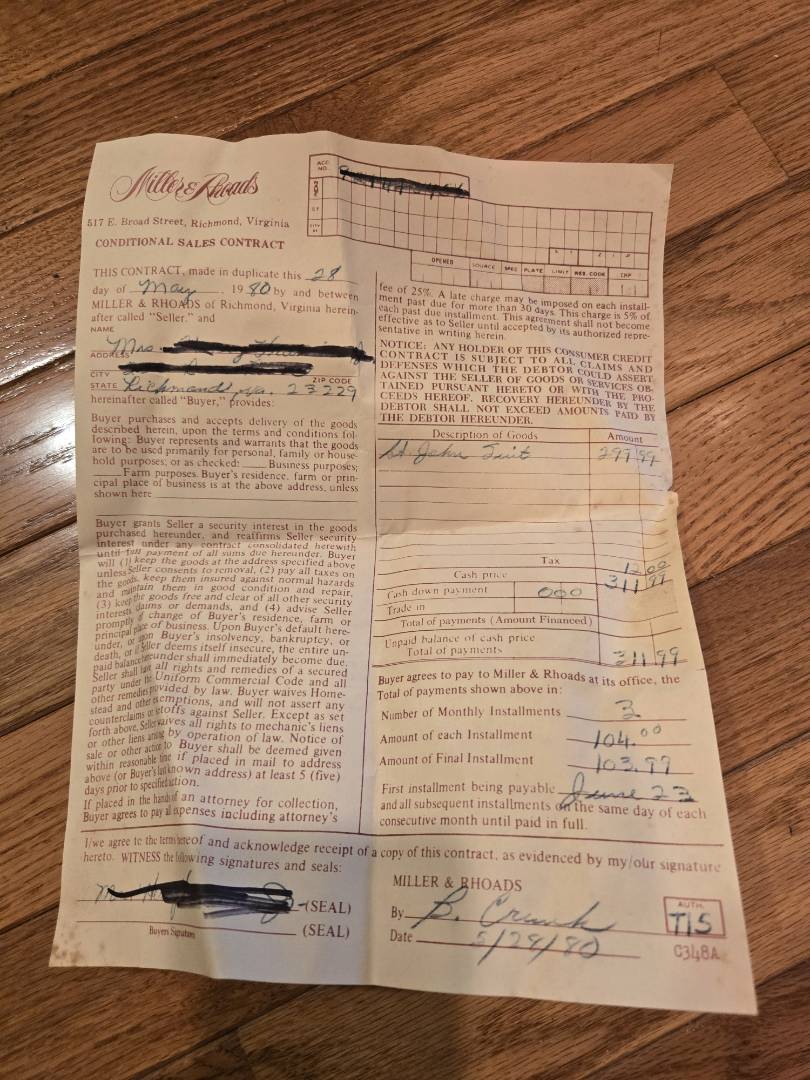 Miller & Rhoads
517 E. Broad Street, Richmond, Virginia
CONDITIONAL SALES CONTRACT
THIS CONTRACT, made in duplicate this 28
day of May, 1980 by and between
MILLER & RHOADS of Richmond, Virginia herein-
after called "Seller." and
NAME
Mrs.
ADDRESS
CITY
STATE Richmond, Va. 23229 ZIP CODE
hereinafter called "Buyer," provides:
Buyer purchases and accepts delivery of the goods
described herein, upon the terms and conditions fol-
lowing: Buyer represents and warrants that the goods
are to be used primarily for personal, family or house-
hold purposes, or as checked: ____ Business purposes;
____ Farm purposes. Buyer's residence, farm or prin-
cipal place of business is at the above address, unless
shown here
Buyer grants Seller a security interest in the goods
purchased hereunder, and reaffirms Seller security
interest under any contract consolidated herewith
until full payment of all sums due hereunder. Buyer
will (1) keep the goods at the address specified above
unless Seller consents to removal, (2) pay all taxes on
the goods, keep them insured against normal hazards
and maintain them in good condition and repair,
(3) keep the goods free and clear of all other security
interests, claims or demands, and (4) advise Seller
promptly of change of Buyer's residence, farm or
principal place of business. Upon Buyer's default here-
under, or upon Buyer's insolvency, bankruptcy, or
death, or if Seller deems itself insecure, the entire un-
paid balance hereunder shall immediately become due.
Seller shall have all rights and remedies of a secured
party under the Uniform Commercial Code and all
other remedies provided by law. Buyer waives Home-
stead and other exemptions, and will not assert any
counterclaims or setoffs against Seller. Except as set
forth above, Seller waives all rights to mechanic's liens
or other liens arising by operation of law. Notice of
sale or other action to Buyer shall be deemed given
within reasonable time if placed in mail to address
above (or Buyer's last known address) at least 5 (five)
days prior to specified action.
If placed in the hands of an attorney for collection,
Buyer agrees to pay all expenses including attorney's
ACC. NO.
OPENED SOURCE SPEC PLATE LIMIT RES. CODE EMP
fee of 25%. A late charge may be imposed on each install-
ment past due for more than 30 days. This charge is 5% of
each past due installment. This agreement shall not become
effective as to Seller until accepted by its authorized repre-
sentative in writing herein.
NOTICE: ANY HOLDER OF THIS CONSUMER CREDIT
CONTRACT IS SUBJECT TO ALL CLAIMS AND
DEFENSES WHICH THE DEBTOR COULD ASSERT
AGAINST THE SELLER OF GOODS OR SERVICES OB-
TAINED PURSUANT HERETO OR WITH THE PRO-
CEEDS HEREOF. RECOVERY HEREUNDER BY THE
DEBTOR SHALL NOT EXCEED AMOUNTS PAID BY
THE DEBTOR HEREUNDER.
Description of Goods Amount
St. John Suit 299.99
Tax 12.00
Cash price 311.99
Cash down payment 000
Trade in
Total of payments (Amount Financed)
Unpaid balance of cash price
Total of payments 311.99
Buyer agrees to pay to Miller & Rhoads at its office, the
Total of payments shown above in:
Number of Monthly Installments 3
Amount of each Installment 104.00
Amount of Final Installment 103.99
First installment being payable June 23
and all subsequent installments on the same day of each
consecutive month until paid in full.
I/we agree to the terms hereof and acknowledge receipt of a copy of this contract, as evidenced by my/our signature
hereto. WITNESS the following signatures and seals:
(SEAL)
(SEAL)
Buyers Signature
MILLER & RHOADS
By B.
Date 5/28/80
AUTH.
T15
C348A